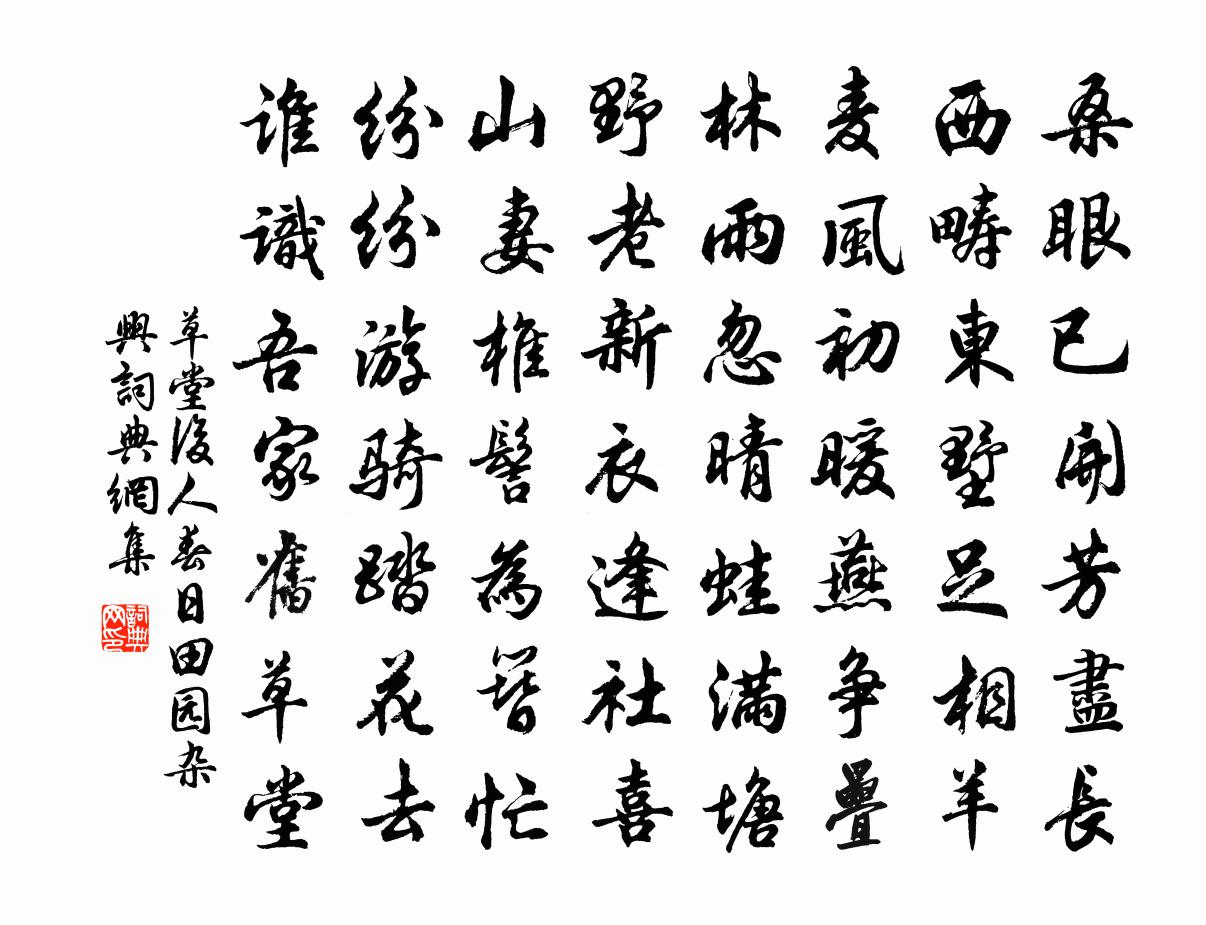 桑眼已開芳盡長
西疇東墅足相羊
麦風初暖燕争疊
林雨忽晴蛙滿塘
野老新衣逢社喜
山妻椎髻為簪忙
紛紛游騎踏花去
誰識吾家舊草堂
草堂後人春日田园杂
興詞典網集
詞典
网印